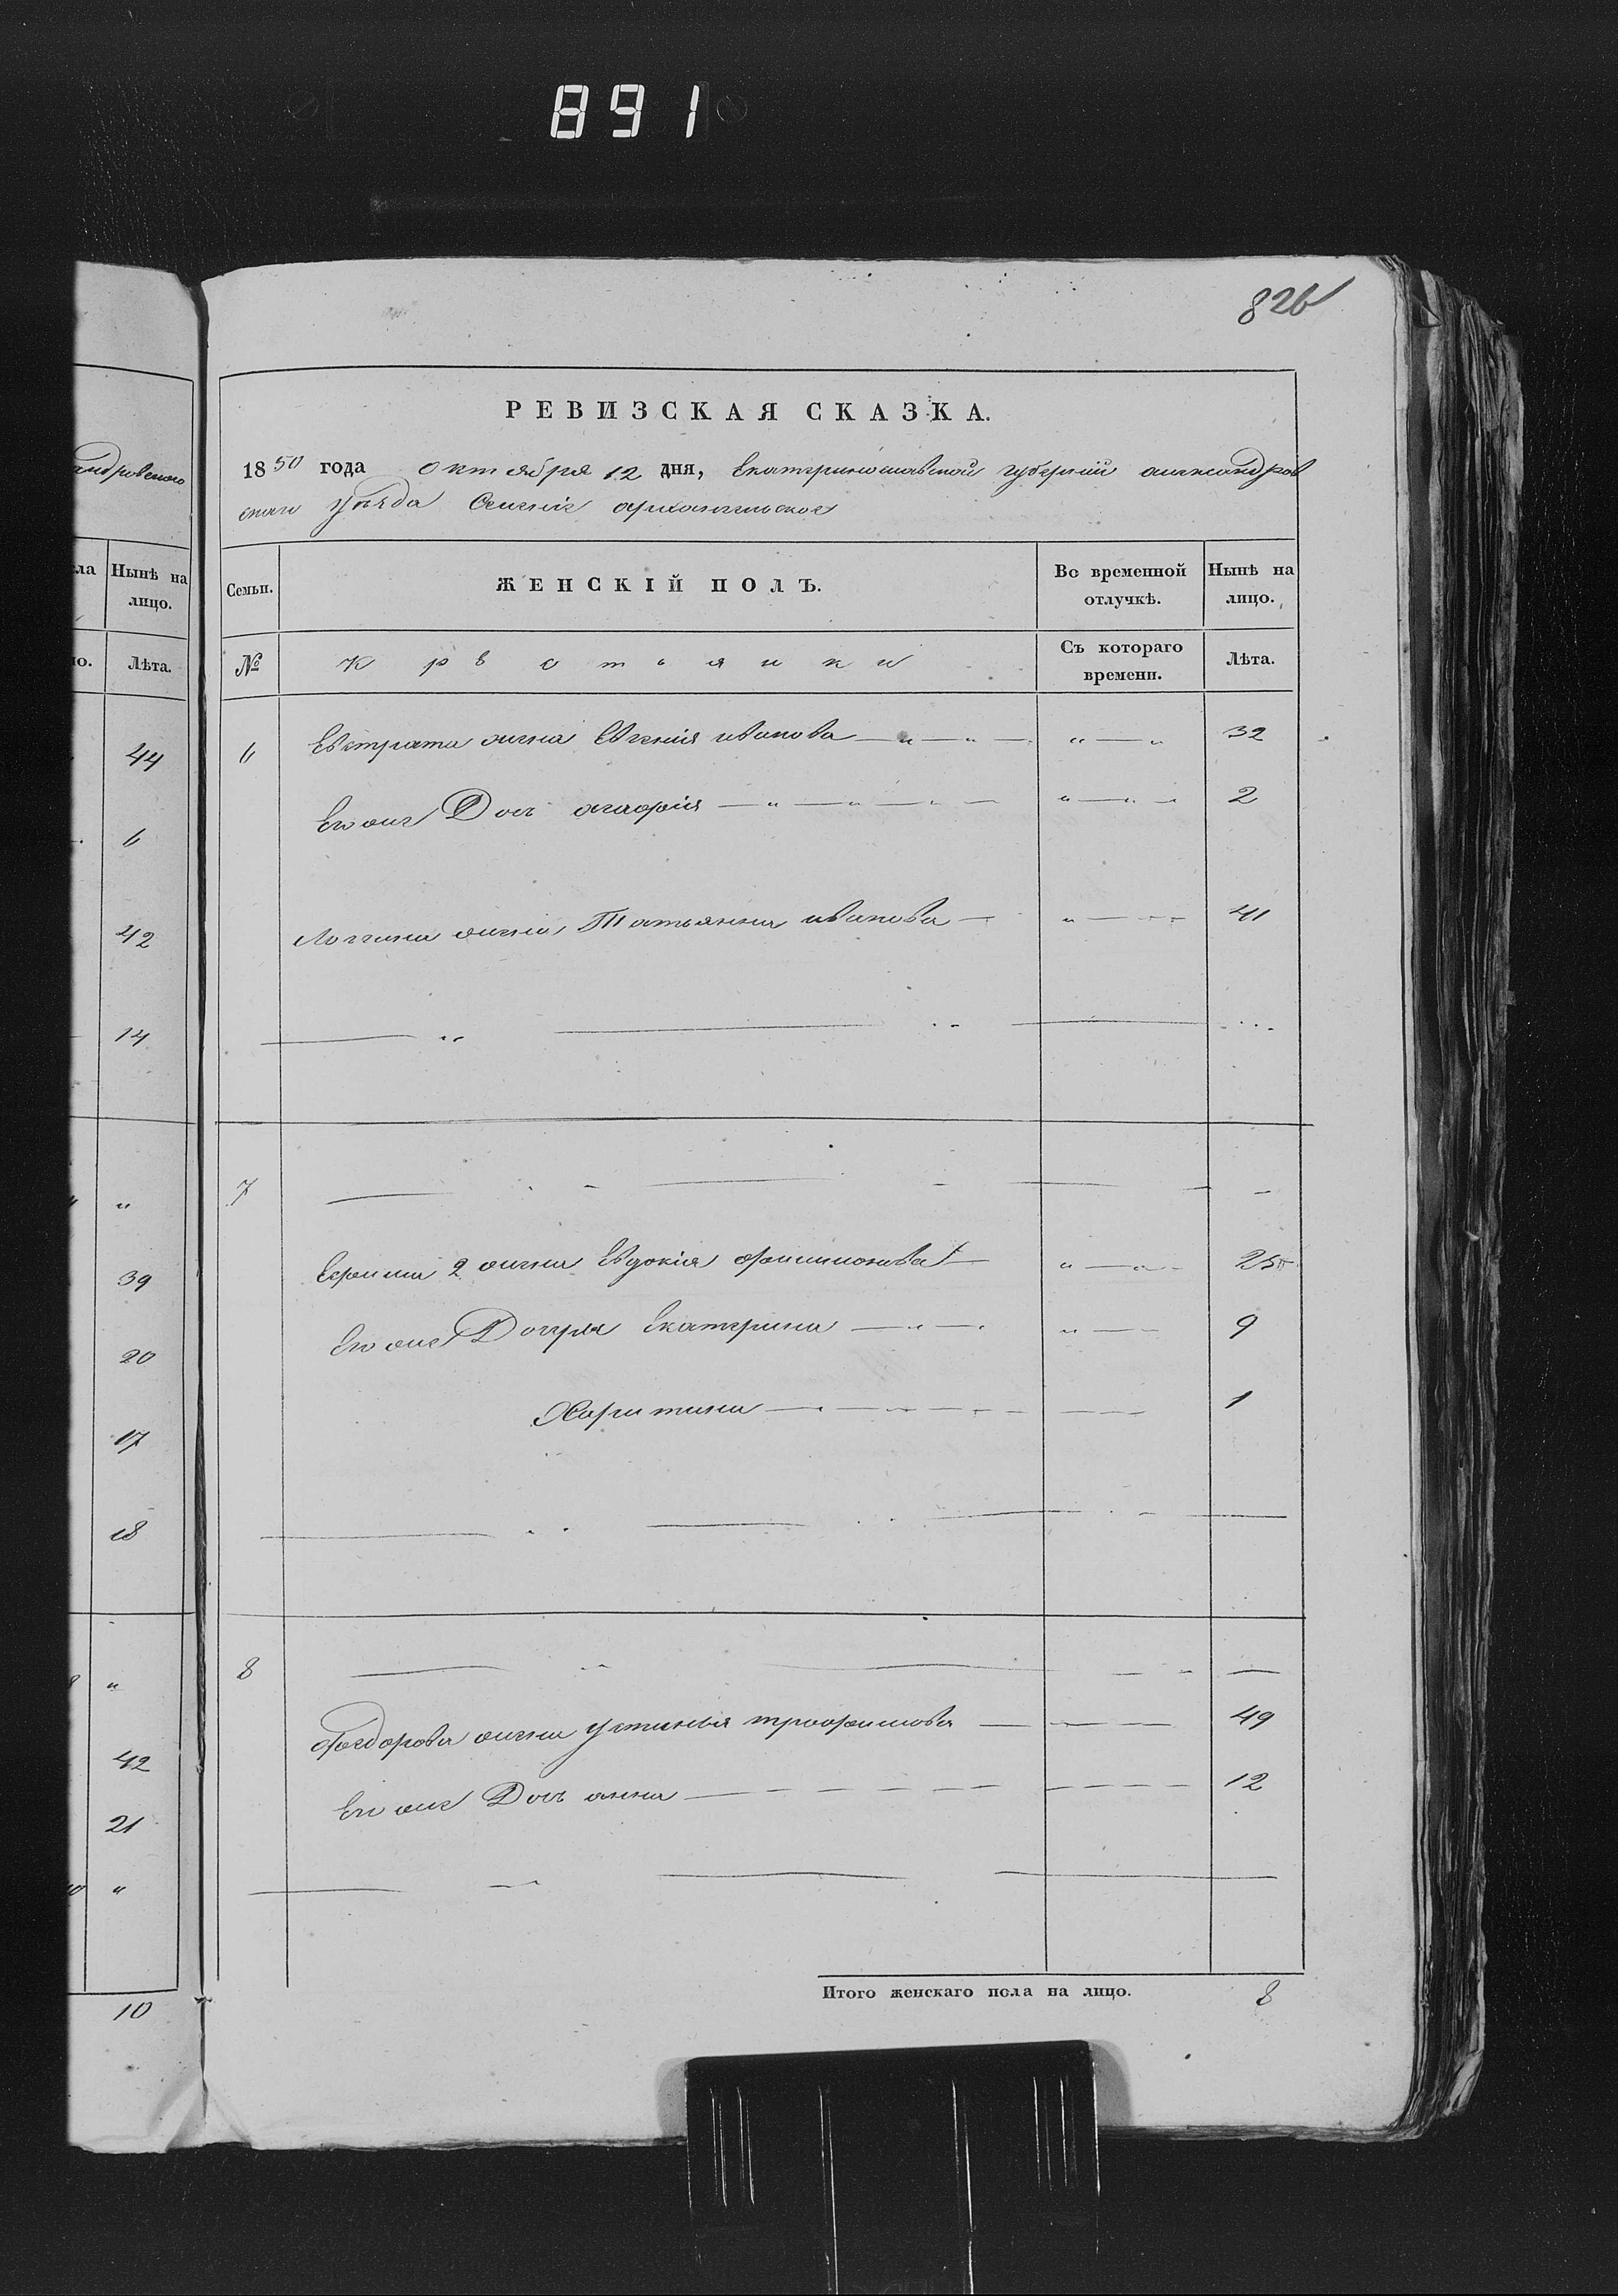 891
826
РЕВИЗСКАЯ СКАЗКА.
1850 года октября 12 дня, Екатеринославской губернии александров
скаго уѣзда Селенiе архангельское
андровского
ла
Нынѣ на лицо.
но.
Лѣта.
44
6
42
14
"
39
20
17
18
"
42
21
"
10
Семьи.
ЖЕНСКІЙ ПОЛЪ.
Во временной отлучкѣ.
Нынѣ на лицо.
№
Крестьянки
Съ котораго времени.
Лѣта.
6 Евстрата жена Евгенія иванова 32
Его же Дочь агафія 2
Логгина жена Татьянна иванова 41
7
Ефима 2 жена Евдокія филимонова 25
Его же Дочеря Екатерина 9
Харитина 1
8
Фоедорова жена устинья трофимова 49
Его же Дочь анна 12
Итого женскаго пола на лицо. 8